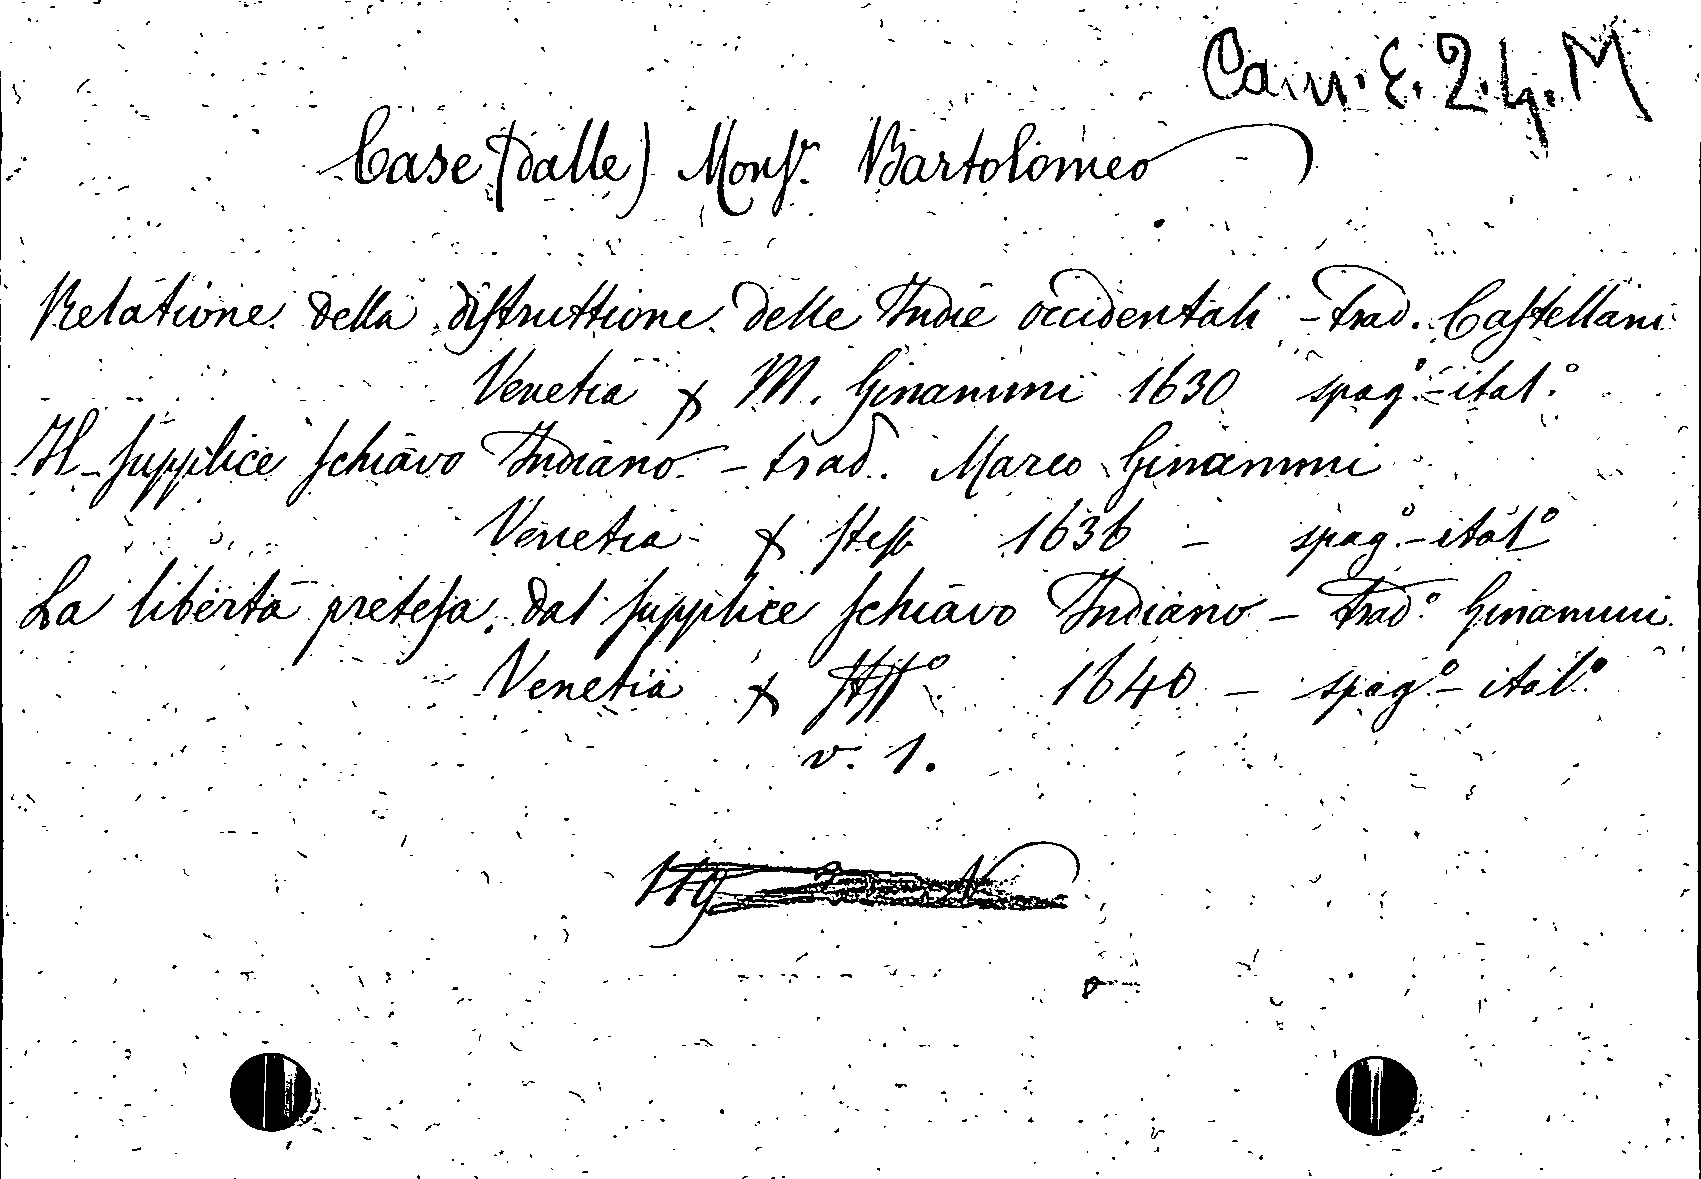 Cam. E. 2. 4. M
Case (dalle) Monsr. Bartolomeo
Relatione della distruttione delle Indie occidentali - trad. Castellani
Venetia x M. Ginammi 1630 spago.-italo.
Il supplice schiavo Indiano - trad. Marco Ginammi
Venetia x stesso 1636 - spago.-italo.
La libertà pretesa dal supplice schiavo Indiano - trado. Ginammi
Venetia x stsso 1640 - spago.- italo.
v. 1.